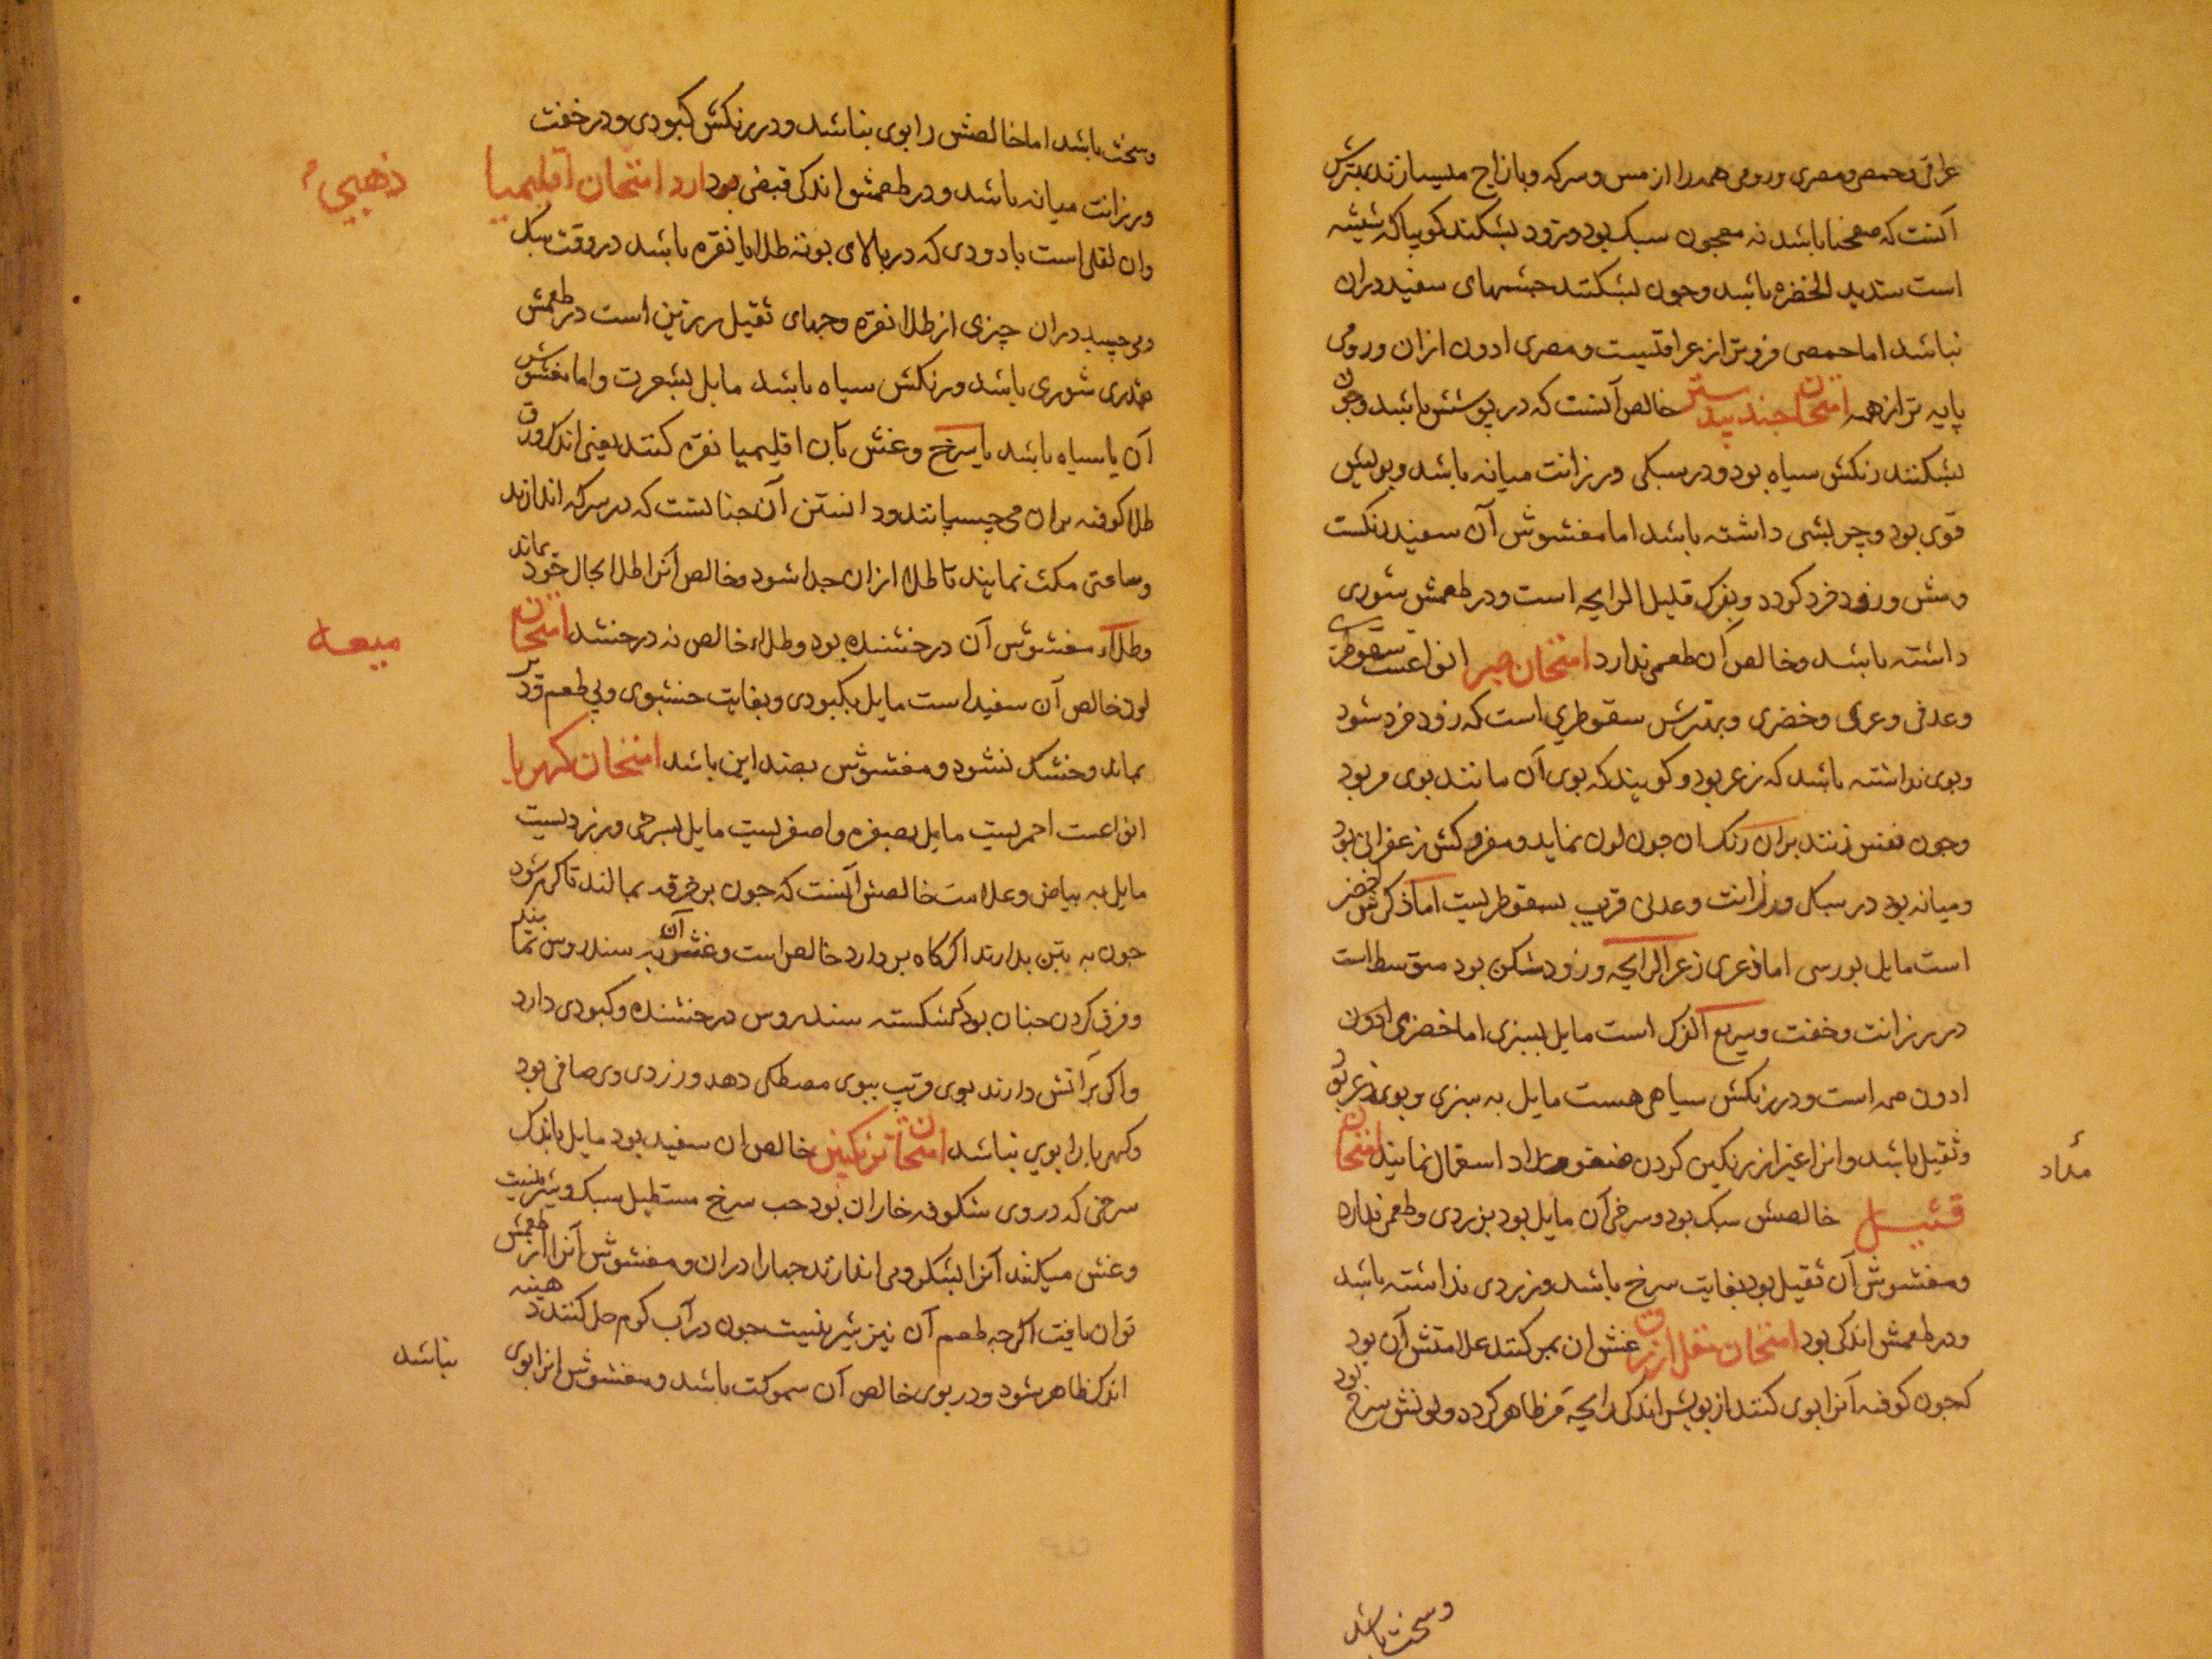 عراقی و حمصی و مصری و رومی همه را از مس و سرکه و بازاج میسازند بهترش
آنست که صفحنا باشد نه معجون سبک بود و زود بشکند کویا که شیشه
است شدید الخضره باشد و چون بشکنند چشمهای سفید دران
نباشد اما حمصی فروتر از عراقیست و مصری ادون ازان و رومی
پایه تر از همه امتحان جند بیدستر خالص آنست که در پوستش باشد و چون
بشکنند رنکش سیاه بود و در سبکی و رزانت میانه باشد و بویش
قوی بود و چربشی داشته باشد اما مغشوش آن سفید رنکست
و زود خرد کردد و بفرک قلیل الرایحه است و در طعمش شوری
داشته باشد و خالص آن طعمی ندارد امتحان صبر انواعست سقوطری
و عدنی و عربی و خضری و بهترش سقوطری است که زود خرد شود
و بوی نداشته باشد که زعر بود و کویند که بوی آن مانند بوی مر بود
و چون نفس زنند بران رنک ان چون لون نماید و مفروکش زعفرانی بود
و میانه بود در سبکی و رزانت و عدنی قریب بسقوطریست اما
است مایل بورسی اما عربی زعر الرایحه و زود شکن بود متوسط است
در رزانت و خفت و سریع الفرک است مایل بسبزی اما خضری ادون
ادون همه است و در رنکش سیاهی هست مایل به سبزی و بوی زعر بود
و ثقیل باشد و انرا غیر از رنکین کردن استعمال نمایند امتحان
مداد
قنبیل خالصش سبک بود و سرخی آن مایل بود بزردی و طعمی ندارد
و مغشوش آن ثقیل بود بغایت سرخ باشد و زردی نداشته باشد
و در طعمش اندکی بود امتحان مقل ازرق غش ان بمر کنند علامتش آن بود
که چون کوفته آنرا بوی کنند از بویش اندکی رایحه مر ظاهر کردد و لونش سرخ بود
وسخت باشد
وسخت باشد اما خالصش را بوی نباشد و در رنکش کبودی و در خفت
و رزانت میانه باشد و در طعمش اندکی قبض بود دارد امتحان اقلیمیا
ذهبی
وان ثفلی است یا دودی که در بالای بوته طلا یا نقره باشد در وقت سبک
و می چسپد دران چیزی از طلا نقره و جهای ثقیل رزین است در طعمش
قدری شوری باشد و رنکش سیاه باشد مایل بشعرت و اما مغشوش
آن یا سیاه باشد یا سرخ و غش بآن اقلیمیا نقره کنند یعنی اندک ورق
طلا کوفته بران می چسپانند و دانستن آن چنانست که در سرکه اندازند
و ساعتی مکث نمایند تا طلا ازان جدا شود و خالص آنرا طلا بحال خود بماند
و طلاء مغشوش آن درخشنده بود و طلاء خالص نه درخشد امتحان
میعه
لون خالص آن سفید است مایل بکبودی و بغایت خشبوی و بی طعم تر
بماند و خشک نشود و مغشوش بضد این باشد امتحان کهربا
انواعست احمریست مایل بصفره و اصفریست مایل بسرخی و زردیست
مایل به بیاض و علامت خالصش آنست که چون بر خرقه بمالند تا کرم شود
چون به تبن بدارند اکر کاه بردارد خالص است و غش آن به سندروس نمایند
و فرق کردن چنان بود که شکسته سندروس درخشنده و کبودی دارد
و اکر بر آتش دارند بوی قریب ببوی مصطکی دهد و زردی وی صافی بود
و کهربا را بوی نباشد امتحان ترنکبین خالص ان سفید بود مایل باندک
سرخی که در وی شکوفه خاران بود حب سرخ مستطیل سبک و شیرینست
و غش میکنند آنرا بشکر و می اندازند جهارا دران و مغشوش آنرا از طعمش
توان یافت اکرچه طعم آن نیز شیرینست چون در آب کرم حل کنند
اندک ظاهر شود و در بوی خالص آن سموکت باشد و مغشوش انرا بوی
نباشد